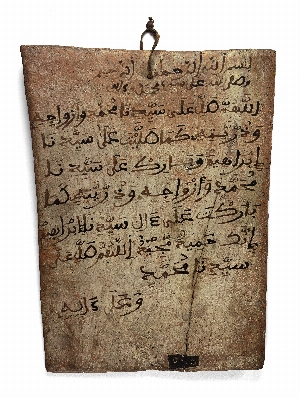 بسم الله الرحمن الرحيم
وصلى الله على
اللهم صل على سيدنا محمد وأزواجه
وذريته كما صليت على سيدنا
إبراهيم وبارك على سيدنا
محمد وأزواجه وذريته كما
باركت على ءال سيدنا إبراهيم
إنك حميد مجيد اللهم صل على
سيدنا محمد
وعلى ءاله